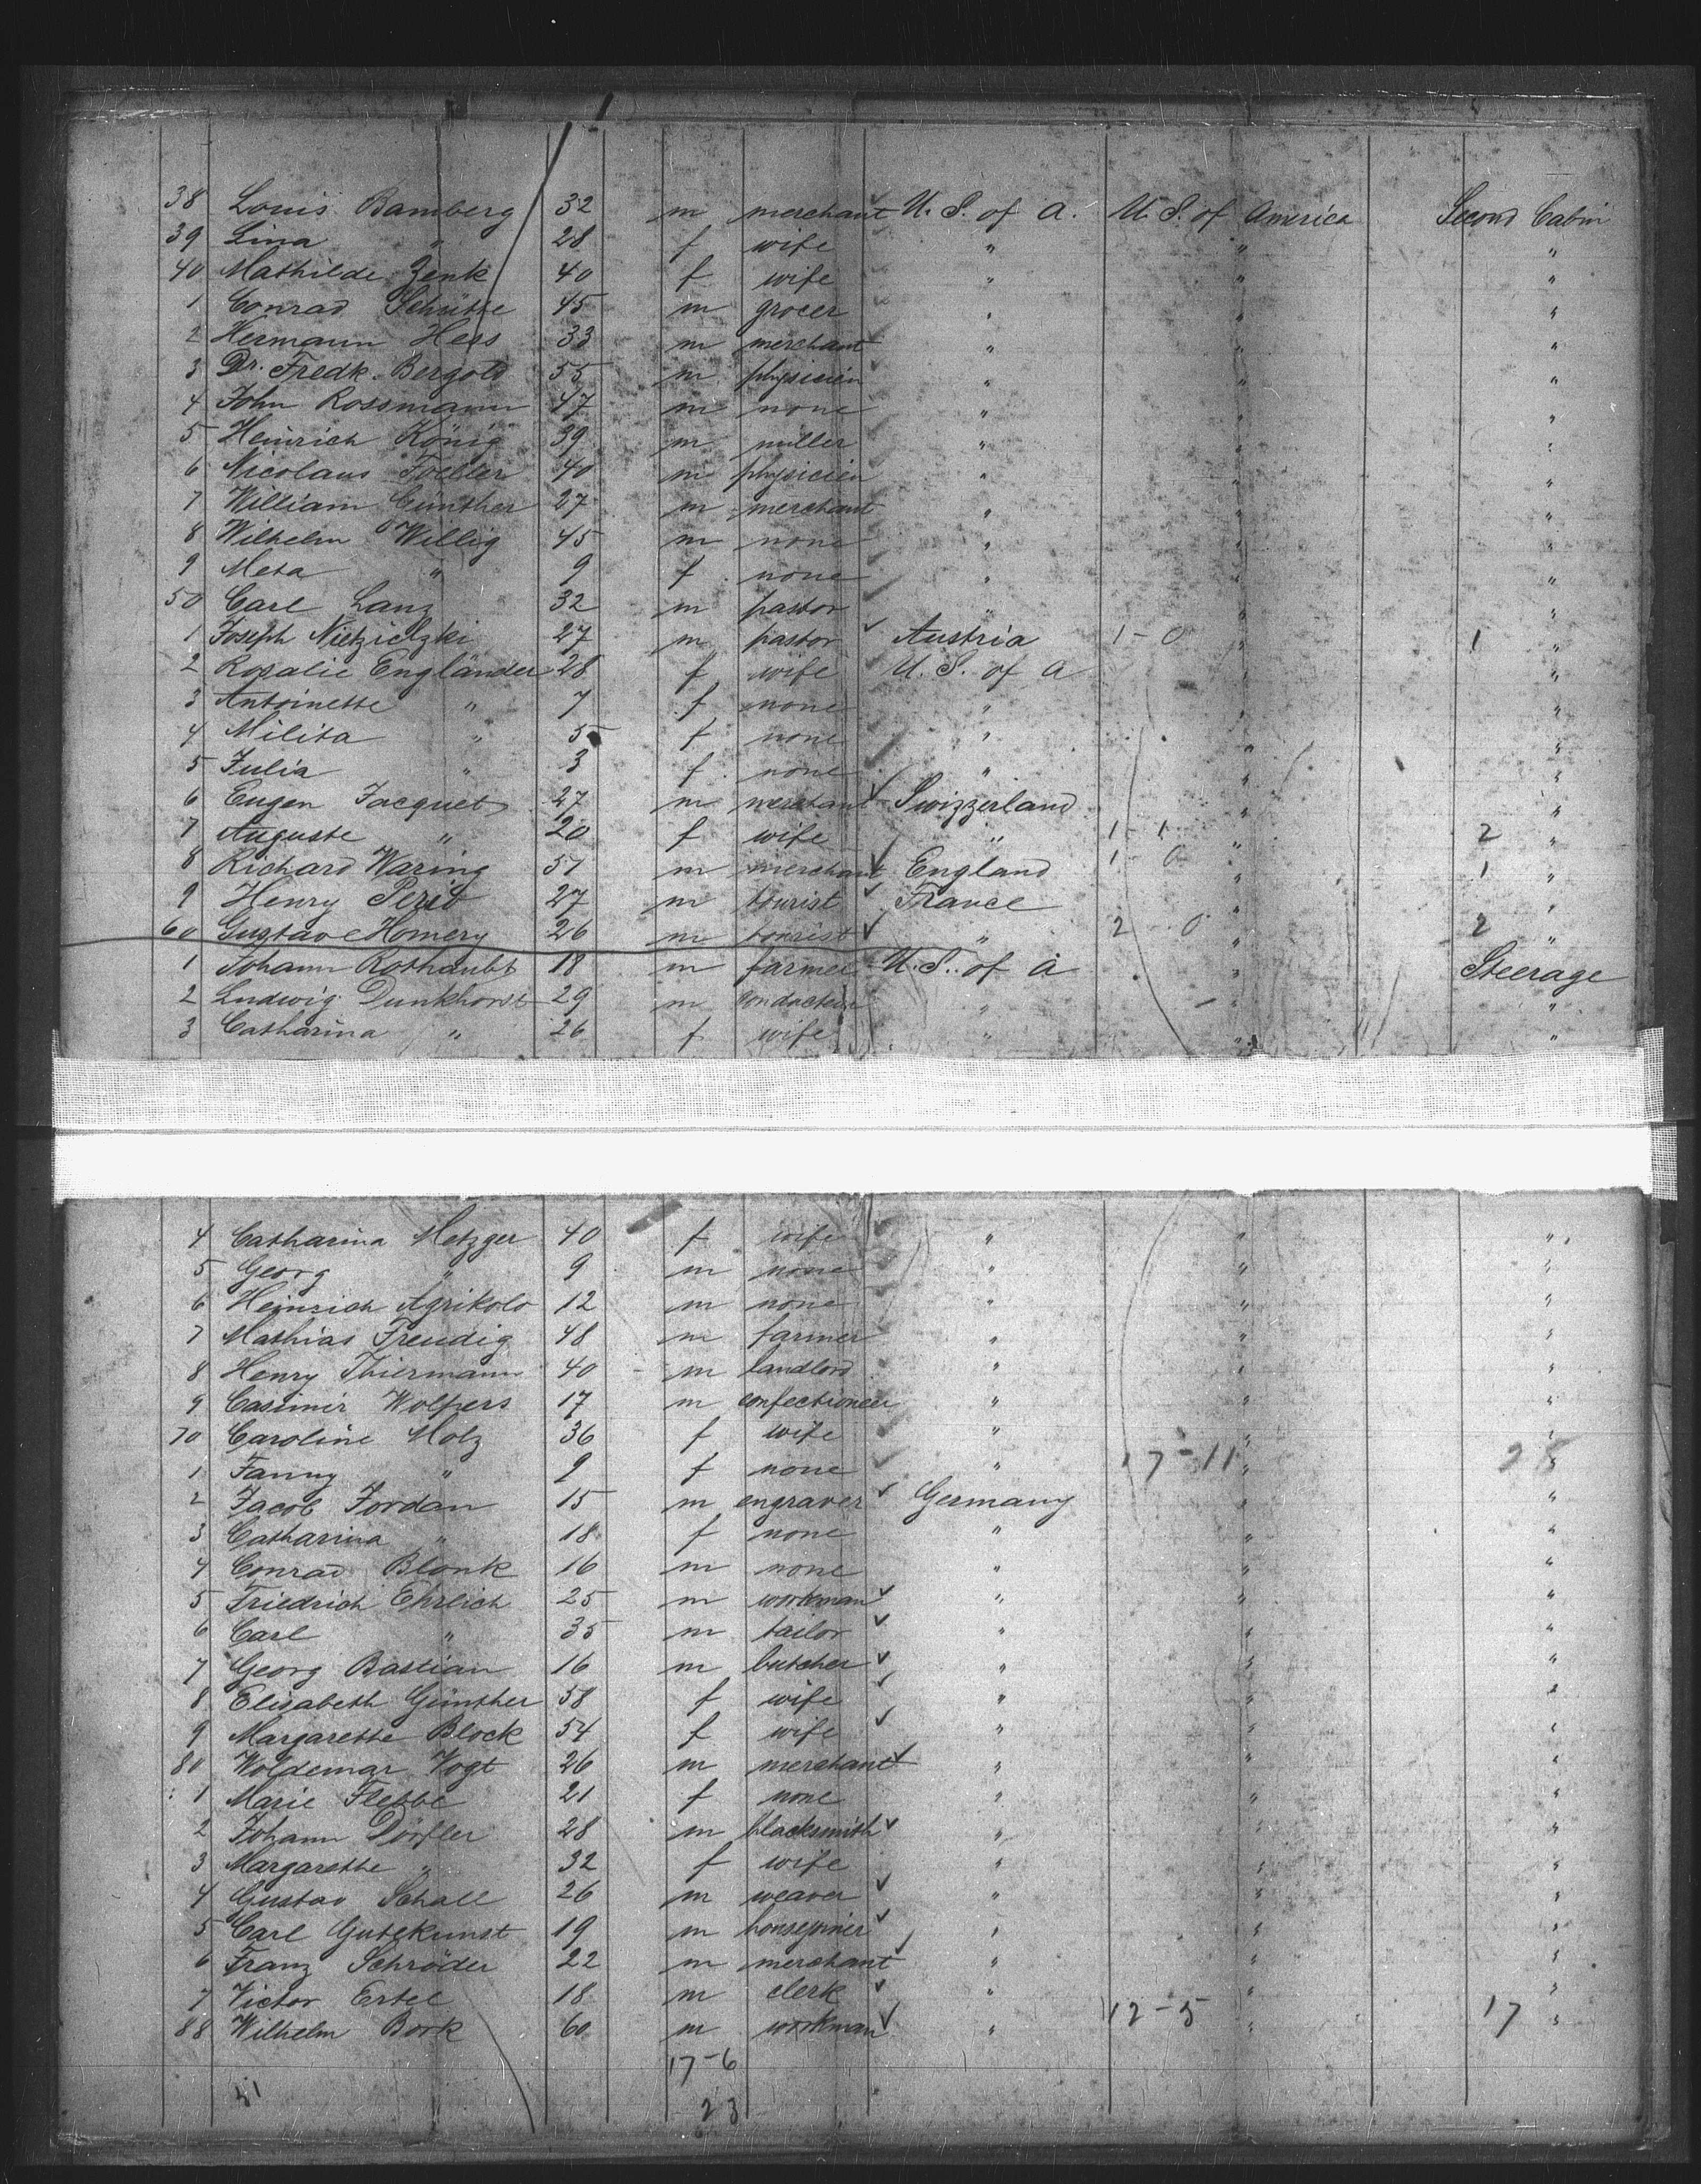 38 Louis Bamberg 32 m merchant U. S. of A. U. S. of America Second Cabin
39 Lina " 28 f wife " " "
40 Mathilde Zenk 40 f wife " " "
1 Conrad Schütte 45 m grocer " " "
2 Hermann Hess 33 m merchant " " "
3 Dr. Fredk. Bergold 55 m physicien " " "
4 John Rossmann 47 m none " " "
5 Heinrich König 39 m miller " " "
6 Nicolaus Foeller 40 m physicien " " "
7 William Günther 27 m merchant " " "
8 Wilhelm Willig 45 m none " " "
9 Meta " 9 f none " " "
50 Carl Lanz 32 m pastor " " "
1 Joseph Nietzielzki 27 m pastor Austria 1-0 " 1 "
2 Rosalie Engländer 28 f wife U. S. of A " "
3 Antoinette " 7 f none " " "
4 Milita " 5 f none " " "
5 Julia " 3 f none " " "
6 Eugen Jacquet 27 m merchant Swizzerland " "
7 Auguste " 20 f wife " 1-1 " 2 "
8 Richard Waring 51 m merchant England 1-0 " 1 "
9 Henry Peris 27 m tourist France " "
60 Gustav Homery 26 m tourist " 2-0 " 2 "
1 Johann Rothaubt 18 m farmer U. S. of A " Steerage
2 Ludwig Dunkhorst 29 m conducteur " " "
3 Catharina " 26 f wife " " "
4 Catharina Metzger 40 f wife " " "
5 Georg " 9 m none " " "
6 Heinrich Agrikolo 12 m none " " "
7 Mathias Freudig 48 m farmer " " "
8 Henry Thiermann 40 m landlord " " "
9 Casimir Wolpers 17 m confectioneer " " "
70 Caroline Molz 36 f wife " " "
1 Fanny " 9 f none " 17-11 " 28 "
2 Jacob Jordan 15 m engraver Germany " "
3 Catharina " 18 f none " " "
4 Conrad Blonk 16 m none " " "
5 Friedrich Ehrlich 25 m workman " " "
6 Carl " 35 m tailor " " "
7 Georg Bastian 16 m butcher " " "
8 Elisabeth Günther 58 f wife " " "
9 Margarethe Block 54 f wife " " "
80 Woldemar Vogt 26 m merchant " " "
1 Marie Flebbe 21 f none " " "
2 Johann Dörfler 28 m blacksmith " " "
3 Margarethe " 32 f wife " " "
4 Gustav Schall 26 m weaver " " "
5 Carl Gutekunst 19 m housejoiner " " "
6 Franz Schröder 22 m merchant " " "
7 Victor Ertel 18 m clerk " " "
88 Wilhelm Bork 60 m workman " 12-5 " 17 "
17-6
51 23